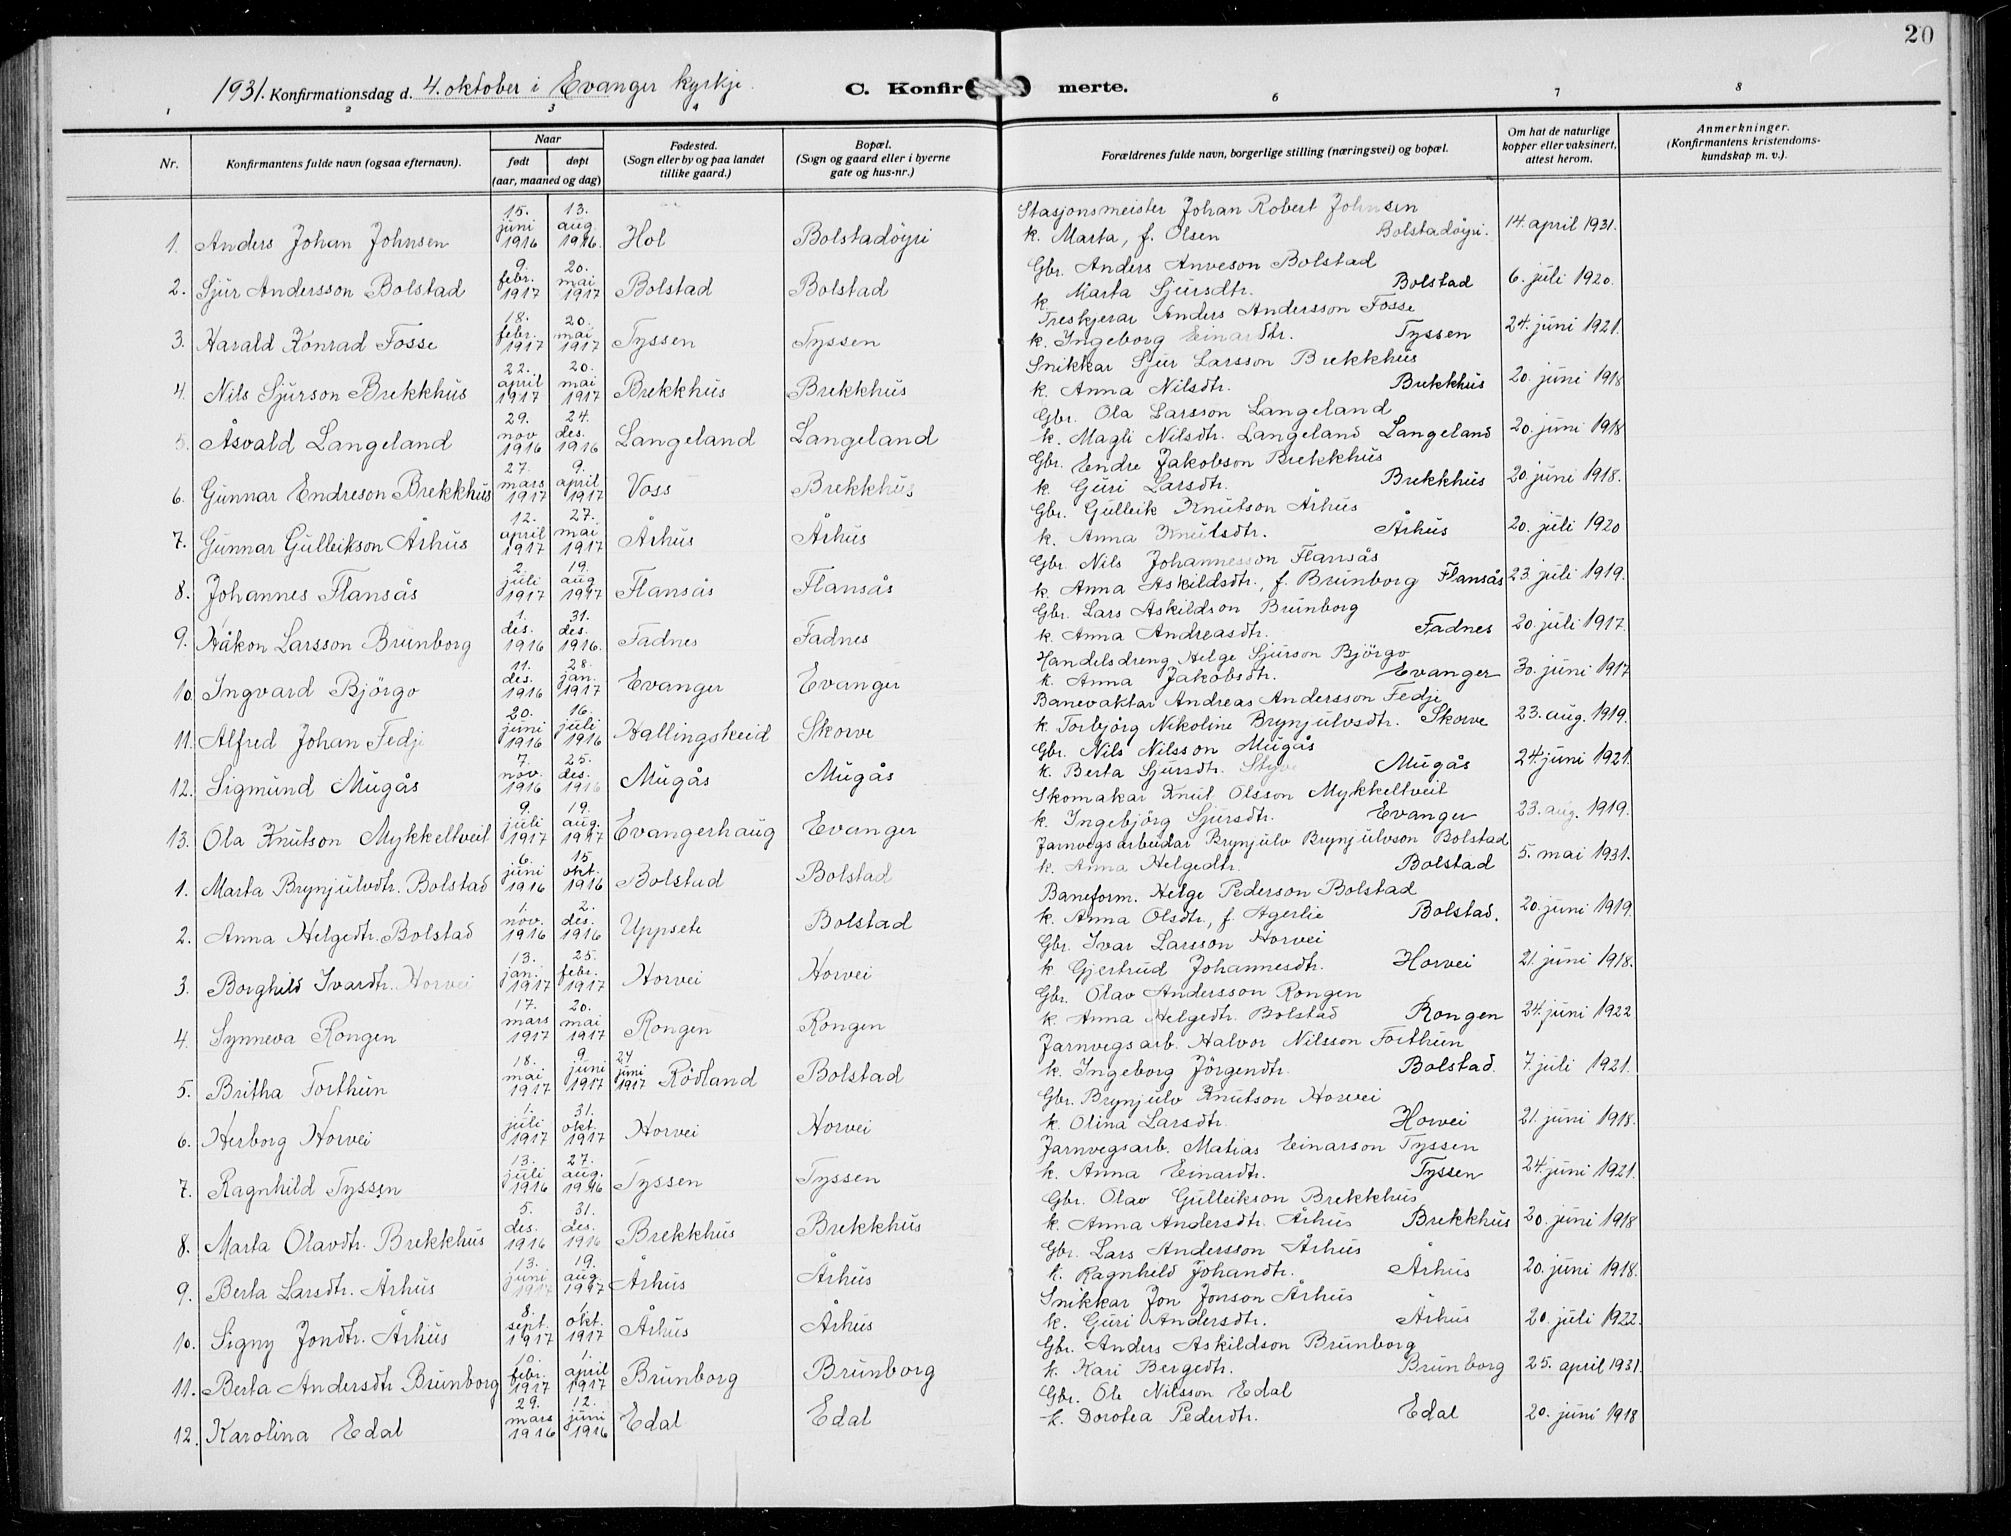 20
1931. Konfirmationsdag d. 4. oktober i Evanger kyrkje. C. Konfirmerte.
1 2 3 4 6 7 8
Nr. Konfirmantens fulde navn (ogsaa efternavn). Naar født døpt (aar, maaned og dag) Fødested. (Sogn eller by og paa landet tillike gaard.) Bopæl. (Sogn og gaard eller i byerne gate og hus-nr.) Forældrenes fulde navn, borgerlige stilling (næringsvei) og bopæl. Om hat de naturlige kopper eller vaksinert, attest herom. Anmerkninger. (Konfirmantens kristendomskundskap m. v.).
1. Anders Johan Johnsen 15. juni 1916 13. aug. 1916. Hol Bolstadöyri Stasjonsmeister Johan Robert Johnsen k. Marta, f. Olsen Bolstadöyri. 14. april 1931.
2. Sjur Andersson Bolstad 9. febr. 1917 20. mai 1917 Bolstad Bolstad Gbr. Anders Anveson Bolstad k. Marta Sjursdtr. Bolstad 6. juli 1920.
3. Harald Konrad Fosse 18. febr. 1917 20. mai 1917 Tyssen Tyssen Treskjerar Anders Andersson Fosse k. Ingeborg Einarsdtr. Tyssen 24. juni 1921.
4. Nils Sjurson Brekkhus 22. april 1917 20. mai 1917 Brekkhus Brekkhus Snikkar Sjur Larsson Brekkhus k. Anna Nilsdtr. Brekkhus 20. juni 1918
5. Åsvald Langeland 29. nov. 1916 24. des. 1916 Langeland Langeland Gbr. Ola Larsson Langeland k. Magli Nilsdtr. Langeland Langeland 20. juni 1918
6. Gunnar Endreson Brekkhus 27. mars 1917 9. april 1917 Voss Brekkhus Gbr. Endre Jakobson Brekkhus k. Guri Larsdtr. Brekkhus 20. juni 1918.
7. Gunnar Gulleikson Århus 12. april 1917 27. mai 1917 Århus Århus Gbr. Gulleik Knutson Århus k. Anna Knutsdtr. Århus 20. juli 1920
8. Johannes Flansås 2. juli 1917 19. aug. 1917 Flansås Flansås Gbr. Nils Johannesson Flansås k. Anna Askildsdtr., f. Brunborg Flansås 23. juli 1919.
9. Håkon Larsson Brunborg 1. des. 1916 31. des. 1916. Fadnes Fadnes Gbr. Lars Askildson Brunborg k. Anna Andreasdtr. Fadnes 20. juli 1917.
10. Ingvard Björgo 11. des. 1916 28. jan. 1917 Evanger Evanger Handelsdreng Helge Sjurson Björgo k. Anna Jakobsdtr. Evanger 30. juni 1917
11. Alfred Johan Fedje 20. juni 1916 16. juli 1916 Hallingskeid Skorve Banevaktar Andreas Andersson Fedje k. Torbjörg Nikoline Brynjulvsdtr. Skorve 23. aug. 1919.
12. Sigmund Mugås 7. nov. 1916 25. des. 1916 Mugås Mugås Gbr. Nils Nilsson Mugås k. Berta Sjursdtr. Styve Mugås 24. juni 1921.
13. Ola Knutson Mykkeltveit 9. juli 1917 19. aug. 1917 Evangerhaug Evanger Skomakar Knut Olsson Mykkeltveit k. Ingebjörg Sjursdtr. Evanger 23. aug. 1919.
1. Marta Brynjulvdtr. Bolstad 6. juni 1916 15. okt. 1916 Bolstad Bolstad Jarnvegsarbeidar Brynjulv Brynjulvson Bolstad k. Anna Helgedtr. Bolstad 5. mai 1931.
2. Anna Helgedtr. Bolstad 1. nov. 1916 2. des. 1916 Uppsete Bolstad Baneform. Helge Pederson Bolstad k. Anna Olsdtr., f. Agerlie Bolstad. 20. juni 1919.
3. Borghild Ivardtr. Horvei 13. jan. 1917 25. febr. 1917 Horvei Horvei Gbr. Ivar Larsson Horvei k Gjertrud Johannesdtr. Horvei 21. juni 1918.
4. Synneva Rongen 17. mars 1917 20. mai 1917 Rongen Rongen Gbr. Olav Andersson Rongen k. Anna Helgedtr. Bolstad Rongen 24. juni 1922
5. Britha Forthun 18. mai 1917 9. juni 1917 24 juni 1917 Rödland Bolstad Jarnvegsarb. Halvor Nilsson Forthun k. Ingeborg Jörgendtr. Bolstad. 7. juli 1921.
6. Herborg Horvei 1. juli 1917 31. okt. 1917 Horvei Horvei Gbr. Brynjulv Knutson Horvei k. Olina Larsdtr. Horvei 21. juni 1918.
7. Ragnhild Tyssen 13. juli 1916 27. aug. 1916 Tyssen Tyssen Jarnvegsarb. Matias Einarson Tyssen k. Anna Einardtr. Tyssen 24. juni 1921.
8. Marta Olavdtr. Brekkhus 5. des. 1916 31. des. 1916 Brekkhus Brekkhus Gbr. Olav Gulleikson Brekkhus k. Anna Andersdtr. Århus Brekkhus 20. juni 1918
9. Berta Larsdtr. Århus 13. juni 1917 19. aug. 1917 Århus Århus Gbr. Lars Andersson Århus k. Ragnhild Johandtr. Århus 20. juni 1918.
10. Signy Jondtr. Århus 8. sept. 1917 1. okt. 1917 Århus Århus Snikkar Jon Jonson Århus k. Guri Andersdtr. Århus 20. juli 1922.
11. Berta Andersdtr Brunborg 10. febr. 1917 1. april 1917 Brunborg Brunborg Gbr. Anders Askildson Brunborg k. Kari Bergedtr. Brunborg 25. april 1931.
12. Karolina Edal 29. mars 1916 12. juni 1916 Edal Edal Gbr. Ole Nilsson Edal k. Dorotea Pederdtr. Edal 20. juni 1918